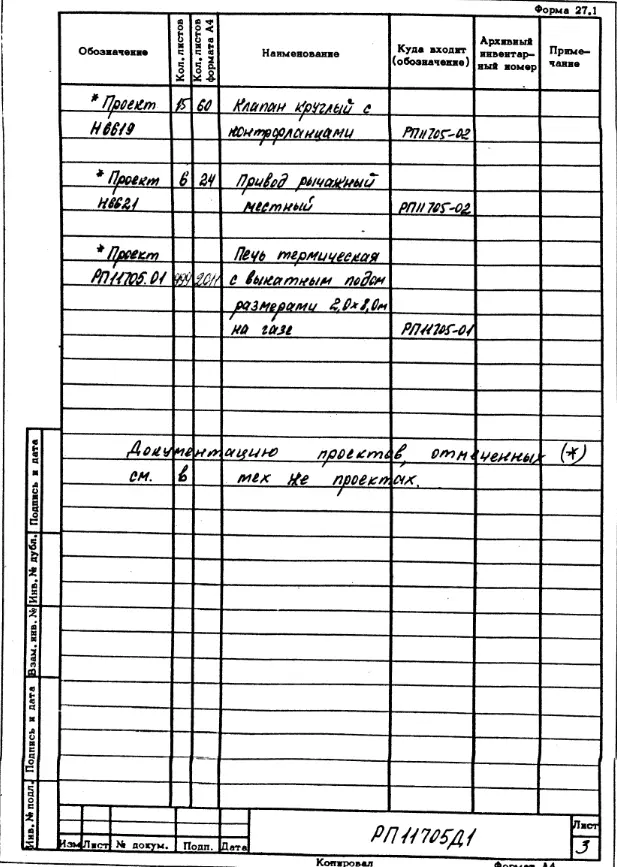 Форма 27.1
Обозначение Кол. листов Кол. листов формата А4 Наименование Куда входит (обозначение) Архивный инвентар- ный номер Приме- чание
* Проект 15 60 Клапан круглый с
Н6619 контрфланцами РП11705-02
* Проект 6 24 Привод рычажный
Н6621 местный РП11705-02
* Проект Печь термическая
РП11705.01 с выкатным подом
размерами 2,0х8,0м
на газе РП11705-01
Документацию проектов, отмеченных (*)
см. в тех же проектах.
Инв. № подл. Подпись и дата Взам. инв. № Инв. № дубл. Подпись и дата
РП11705Д1
Лист
3
Изм Лист № докум. Подп. Дата
Копировал Формат А4